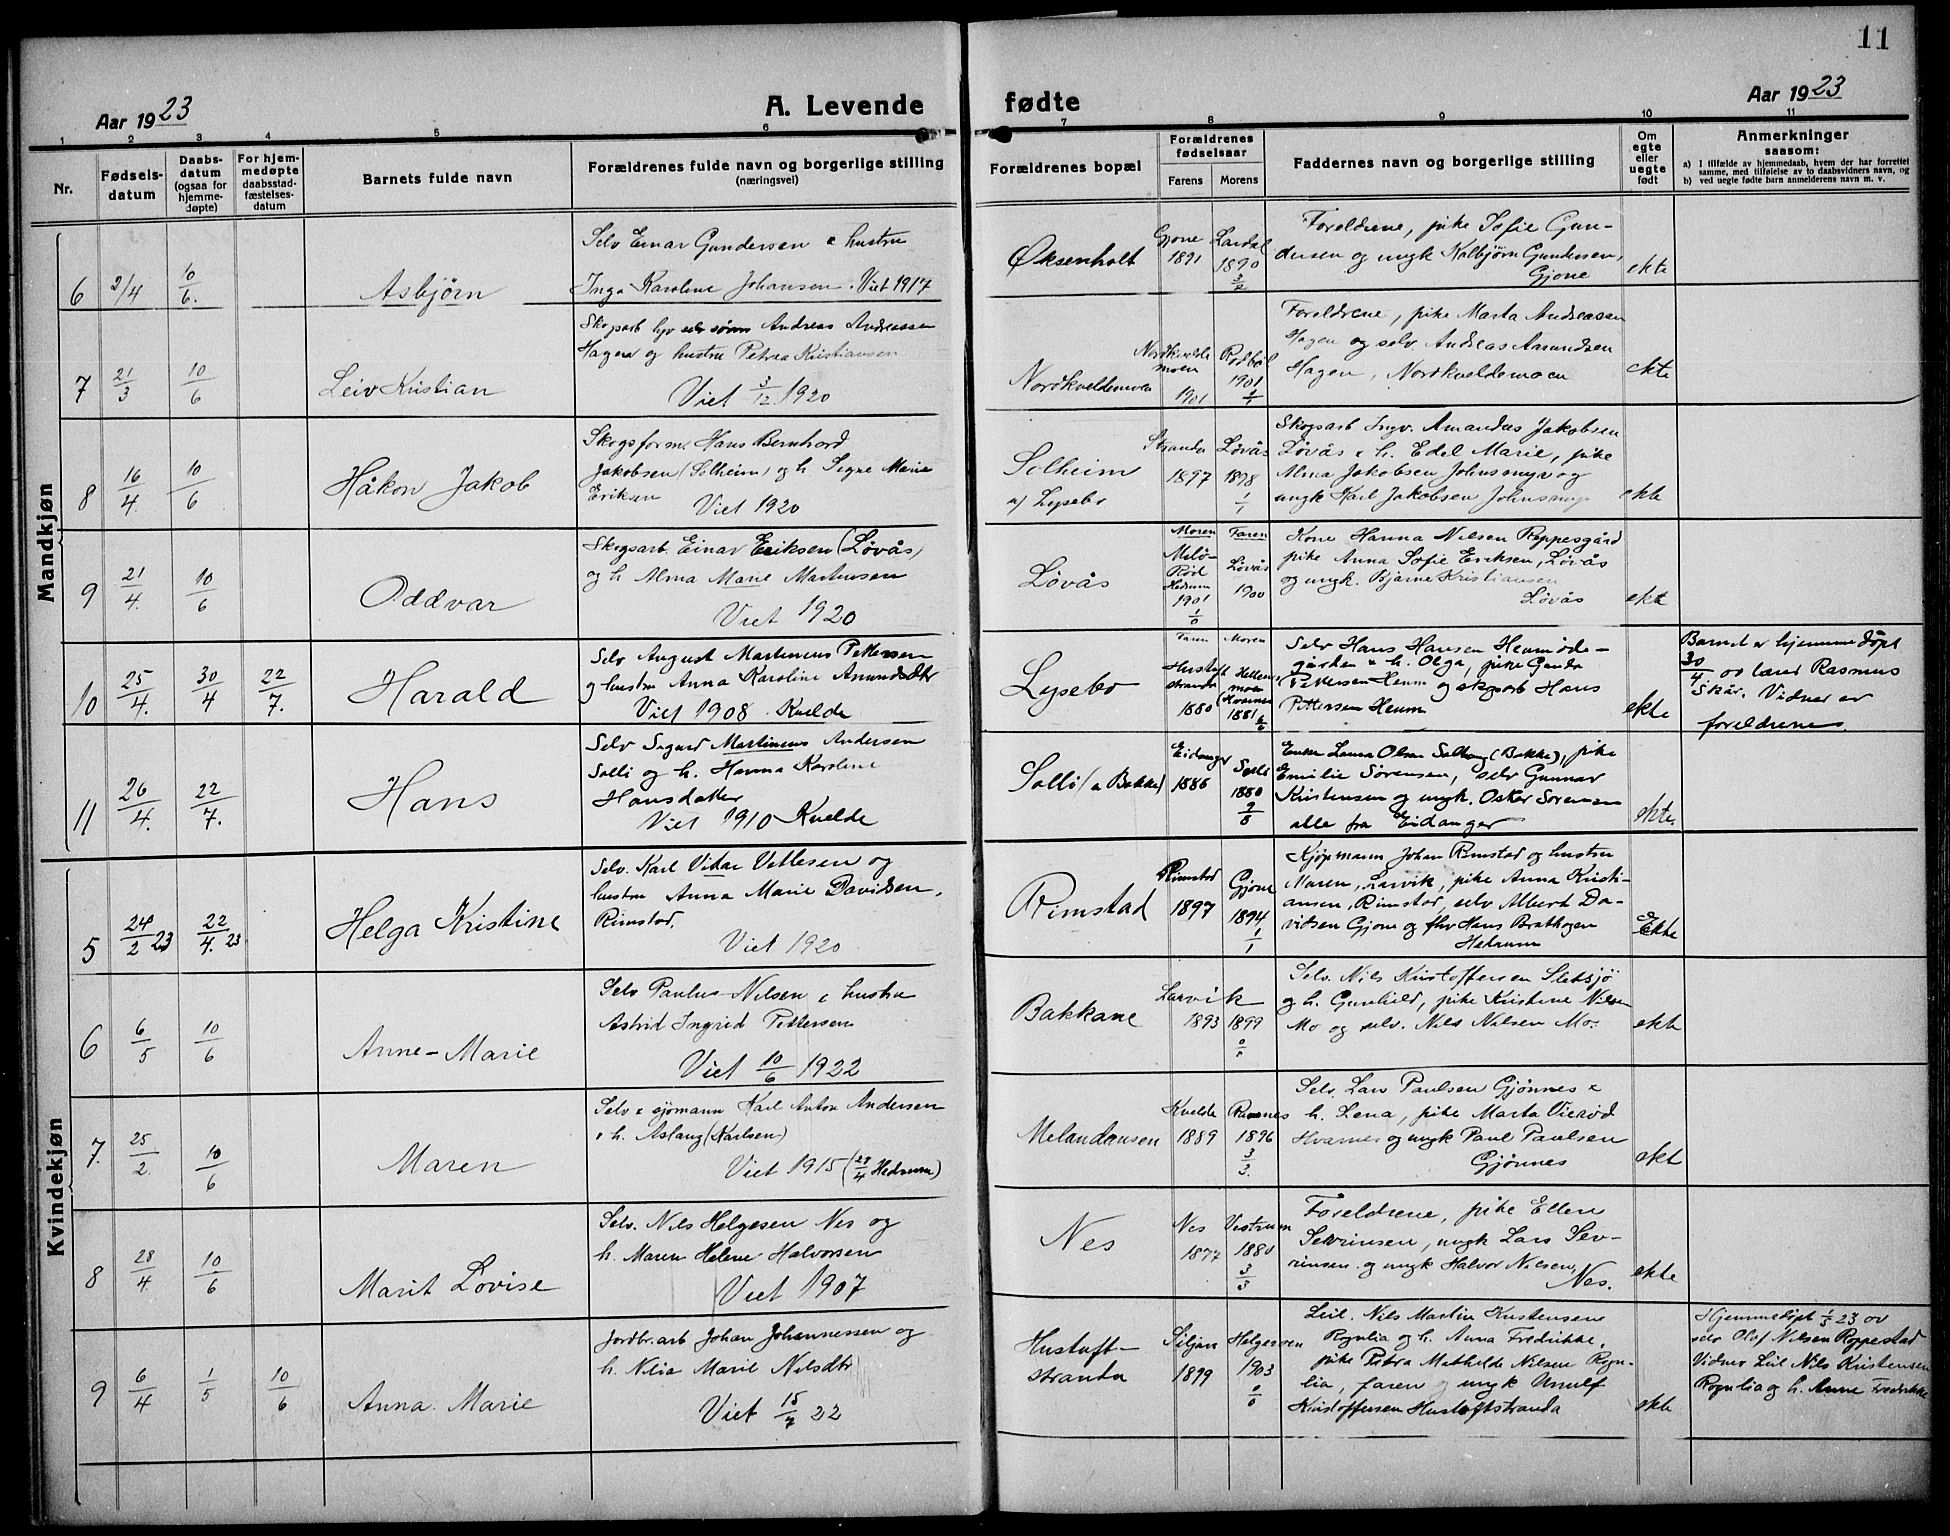 11
Aar 1923
A. Levende fødte
Aar 1923
1 2 3 4 5 6 7 8 9 10 11
Nr.
Fødsels-
datum
Daabs-
datum
(ogsaa for
hjemme-
døpte)
For hjem-
medøpte
daabsstad-
fæstelses-
datum
Barnets fulde navn
Forældrenes fulde navn og borgerlige stilling
(næringsvei)
Forældrenes bopæl
Forældrenes
fødselsaar
Farens Morens
Faddernes navn og borgerlige stilling
Om
egte
eller
uegte
født
Anmerkninger
saasom:
a) I tilfælde av hjemmedaab, hvem der har forrettet
samme, med tilføielse av to daabsvidners navn, og
b) ved uegte fødte barn anmelderens navn m. v.
Mandkjøn
6 2/4 10/6. Asbjørn
Selv Einar Gundersen & hustru
Inga Karoline Johansen. Viet 1917
Øksenholt
Gjone
1891
Lardal
1890
Foreldrene, pike Sofie Gun-
dersen og ungk Kolbjørn Gundersen,
Gjone
ekte
7 21/3 10/6 Leiv Kristian
Skogsarb Andreas Andreassen
Hagen og hustru Petra Kristiansen
Viet 3/12 1920
Nordkveldemoen
Nordkvelde
moen
1901
Rødbøl
1901
Foreldrene, pike Marta Andreassen
Hagen og selv Andreas Amundsen
Hagen, Nordkveldemoen
ekte
8 16/4. 10/6 Håkon Jakob
Skogsform. Hans Bernhard
Jakobsen (Solheim) og h. Signe Marie
Eriksen
Viet 1920
Solheim
a) Lysebo
Stranda
1897
Løvås
1898
1/1
Skogsarb Ingv. Amandus Jakobsen
Løvås & h. Edel Marie, pike
Alma Jakobsen Johnsmyr og
ungk Karl Jakobsen Johnsmyr
ekte
9 21/4. 10/6 Oddvar
Skogsarb. Einar Eriksen (Løvås)
og h Alma Marie Martinsen
Viet 1920
Løvås
Moren
Melø-
Rød
Hedrum
1901
1/0
Faren
Løvås
1900
Kone Hanna Nilsen Roppesgård
pike Anna Sofie Eriksen, Løvås
og ungk. Bjarne Kristiansen
Løvås
ekte
10 25/4. 30/4 22/7. Harald
Selv August Martinius Pettersen
og hustru Anna Karoline Amundsdtr
Viet 1908 Kvelde
Lysebo
Faren
Hustoft
stranda
1880
Moren
moen
1881
Selv Hans Hansen Heumøde-
gården & h. Olga, pike
Pettersen Heum og skogsarb Hans
Pettersen Heum
ekte
Barnet er hjemmedøpt
30/4. av lærer Rasmus
Skår. Vidner er
foreldrene.
11 26/4. 22/7. Hans
Selv Sigurd Martinius Andersen
Solli og h. Hanna Karoline
Hansdatter
Viet 1910 Kvelde
Solli (a Bakke)
Eidanger
1886
Solli
1880
Enke Laura Olsen (Bakke), pike
Emilie Sørensen, selv Gunnar
Kristensen og ungk. Oskar Sørensen
alle fra Eidanger
ekte.
Kvindekjøn
5 24/2 23 22/4. 23 Helga Kristine
Selv. Karl Vidar Vettesen og
hustru Anna Marie Davidsen,
Rimstad.
Viet 1920
Rimstad
Rimstad
1897
Gjone
1894
1/1
Kjøpmann Johan Rimstad og hustru
Maren, Larvik, pike Anna Kristi-
ansen, Rimstad, selv Albert Da-
vidsen Gjone og fhv Hans Brathagen
Hedrum
Ekte
6 6/5 10/6 Anne-Marie
Selv Paulus Nilsen & hustru
Astrid Ingrid Pettersen
Viet 10/6 1922
Bakkane
Larvik
1893 1899
Selv. Nils Kristoffersen Sletsjø
og h. Gunhild, pike Kristine Nilsen
Mo og selv. Nils Nilsen Mo.
ekte
7. 25/2. 10/6 Maren
Selv & sjømann Karl Anton Andersen
& h. Aslaug (Karlsen)
Viet 1915 (28/4 Hedrum)
Melandåsen
Kvelde
1889
1896
3/3.
Selv. Lars Paulsen Gjønnes &
h. Lena, pike Marta Vierød
Hvarnes og ungk Paul Paulsen
Gjønnes
ekte
8 28/4. 10/6 Marit Lovise
Selv. Nils Helgesen Nes og
h. Maren Helene Halvorsen
Viet 1907
Nes
Nes
1877
Vestrum
1880
3/3
Foreldrene, pike Ellen
Sevrinsen, ungk Lars Sev-
rinsen og ungk Halvor Nilsen,
Nes.
ekte
9 6/4 1/5 10/6 Anna Marie
Jordbr.arb Johan Johannessen og
h. Nilia Marie Nilsdtr
Viet 15/7 22
Hustoft-
stranda
Siljan
1899
Helgeroen
1903
0/0
Leil. Nils Martin Kristensen
Rognlia og h. Anna Fredrikke,
pike Petra Mathilde Nilsen Rogn-
lia, faren og ungk Arnulf
Kristoffersen Hustoftstranda
ekte
Hjemmedøpt 1/5 23 av
selv Olaf Nilsen Roppestad
Vidner Leil Nils Kristensen
Rognlia og h. Anne Fredrikke